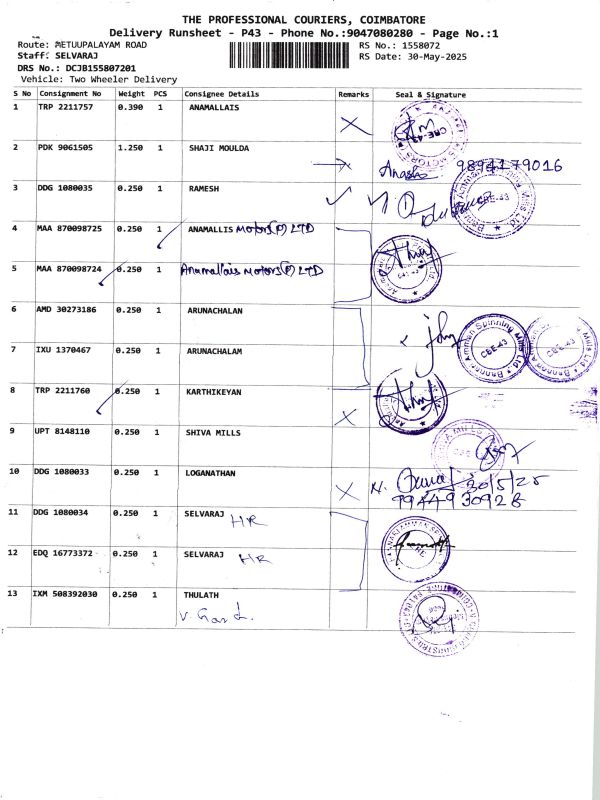 THE PROFESSIONAL COURIERS, COIMBATORE
Delivery Runsheet - P43 - Phone No.:9047080280 - Page No.:1
Route: METUUPALAYAM ROAD
RS No.: 1558072
Staff: SELVARAJ
RS Date: 30-May-2025
DRS No.: DCJB155807201
Vehicle: Two Wheeler Delivery
S No Consignment No Weight PCS Consignee Details Remarks Seal & Signature
1 TRP 2211757 0.390 1 ANAMALLAIS
2 PDK 9061505 1.250 1 SHAJI MOULDA
9894179016
3 DDG 1080035 0.250 1 RAMESH
4 MAA 870098725 0.250 1 ANAMALLIS Motors(P) LTD
5 MAA 870098724 0.250 1 Anamallais Motors(P) LTD
6 AMD 30273186 0.250 1 ARUNACHALAN
7 IXU 1370467 0.250 1 ARUNACHALAM
Bannari Amman Spinning Mills Ltd
CBE-43
8 TRP 2211760 0.250 1 KARTHIKEYAN
9 UPT 8148110 0.250 1 SHIVA MILLS
10 DDG 1080033 0.250 1 LOGANATHAN
30/5/25
9944930928
11 DDG 1080034 0.250 1 SELVARAJ HR
12 EDQ 16773372 0.250 1 SELVARAJ HR
13 IXM 508392030 0.250 1 THULATH